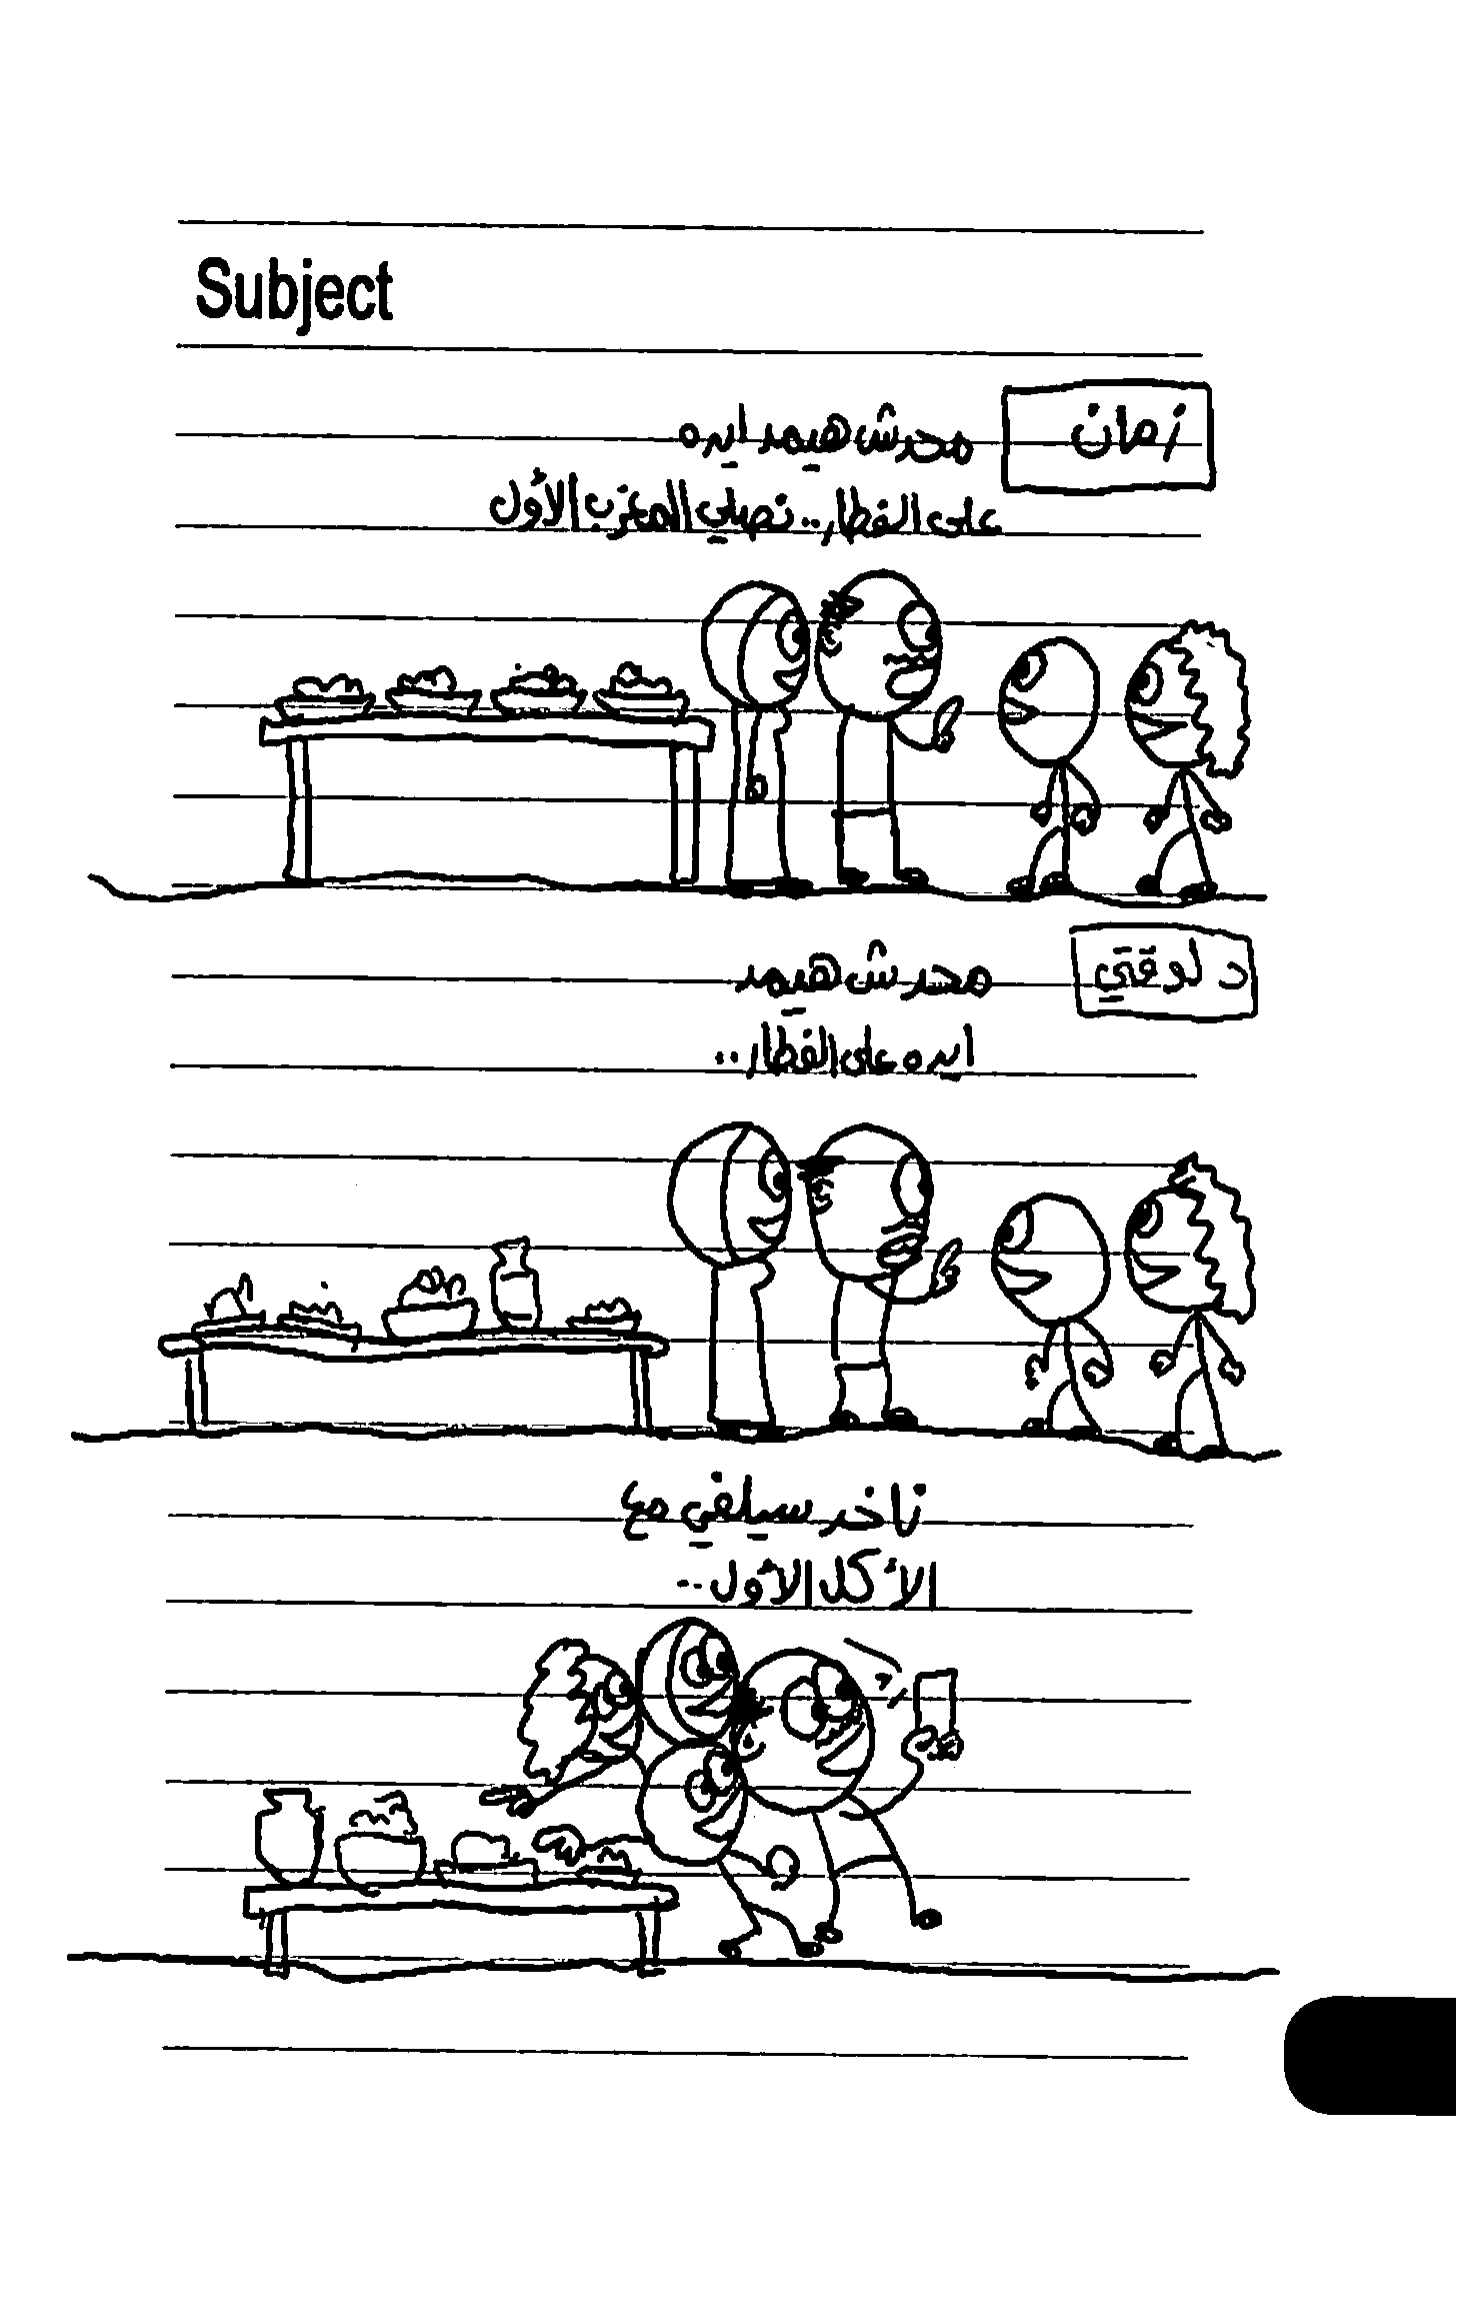 Subject
زمان
محدش هيمد ايده
على الفطار.. نصلي المغرب الأول
دلوقتي
محدش هيمد
ايده على الفطار..
ناخد سيلفي مع
الأكل الأول..